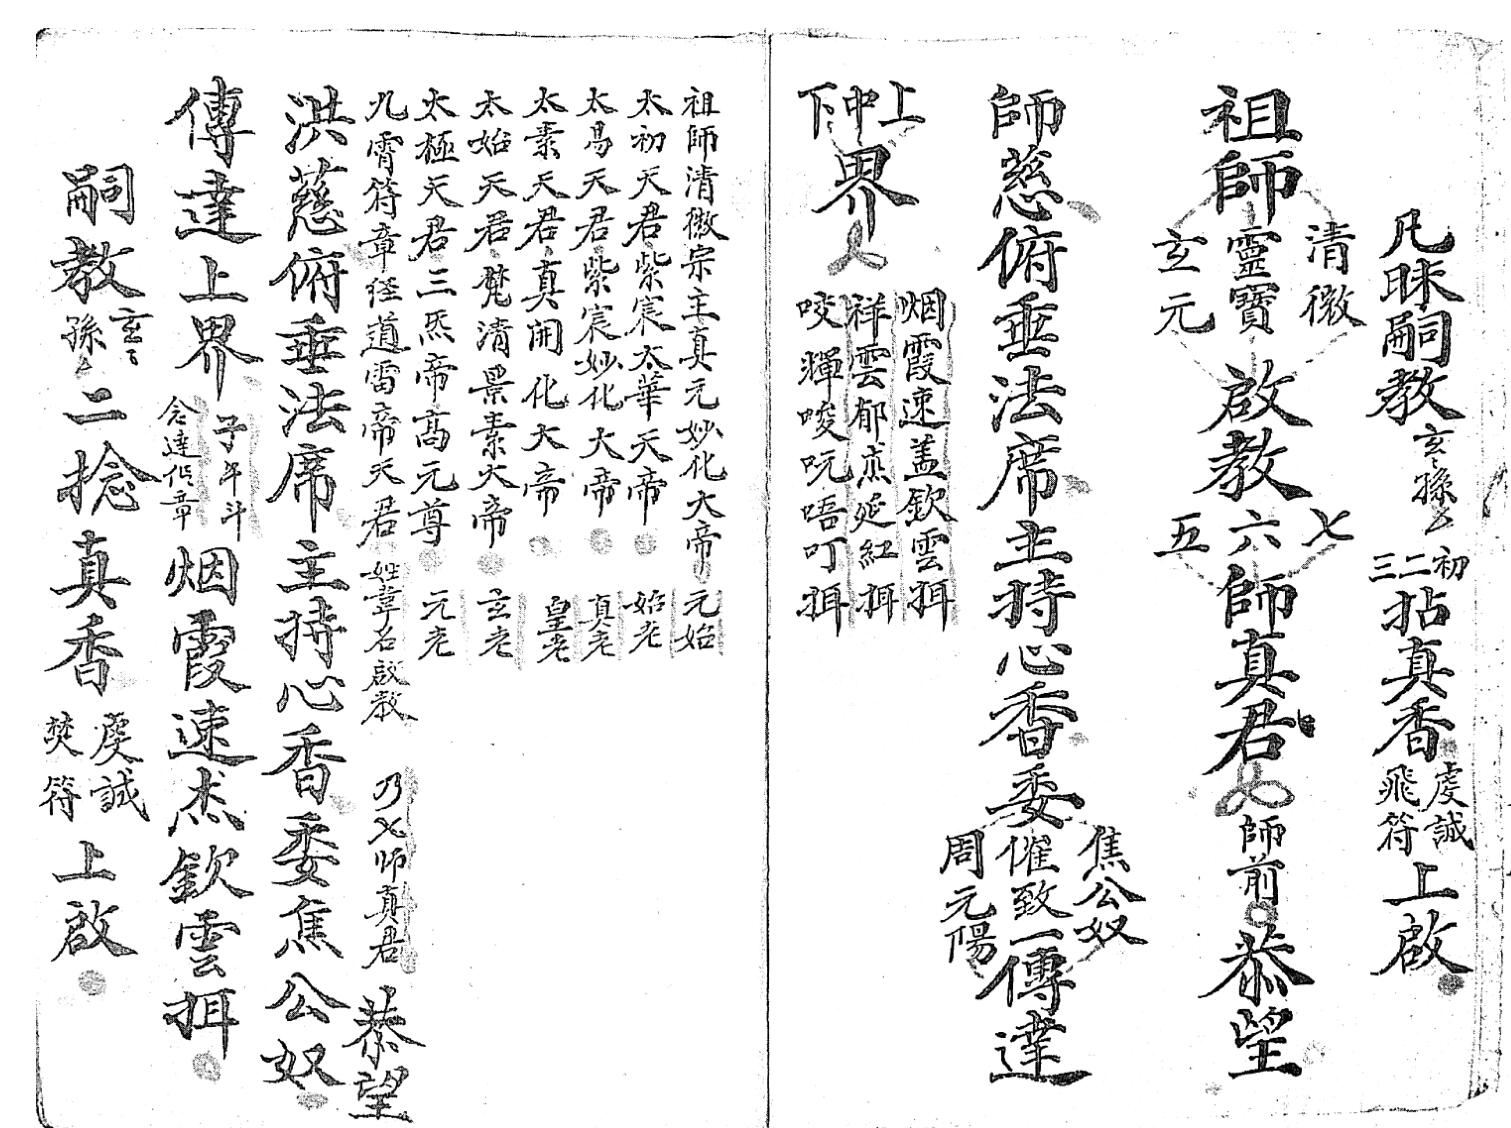 凡昧嗣教 玄孫 初二三 拈真香 虔誠 飛符 上啟
祖師 清微 靈寶 玄元 啟教 七六五 師真君 師前 恭望
師慈俯垂法席主持心香委 焦公奴 催致一 周元陽 傳達
上中下界 烟霞速蓋欽雲挕
祥雲郁 延紅挕
咬輝唆吭唔叮挕
祖師清微宗主真元妙化大帝 元始
太初天君紫宸太華天帝 始老
太易天君紫宸妙化大帝 真老
太素天君真開化大帝 皇老
太始天君梵清景素大帝 玄老
太極天君三炁帝高元尊 元老
九霄符章経道雷帝天君 姓韋名啟教 乃七師真君 恭望
洪慈俯垂法席主持心香委焦公奴
傳達上界 子午斗 念達 章 烟霞速杰欽雲挕
嗣教 玄孫 二捻真香 虔誠 焚符 上啟